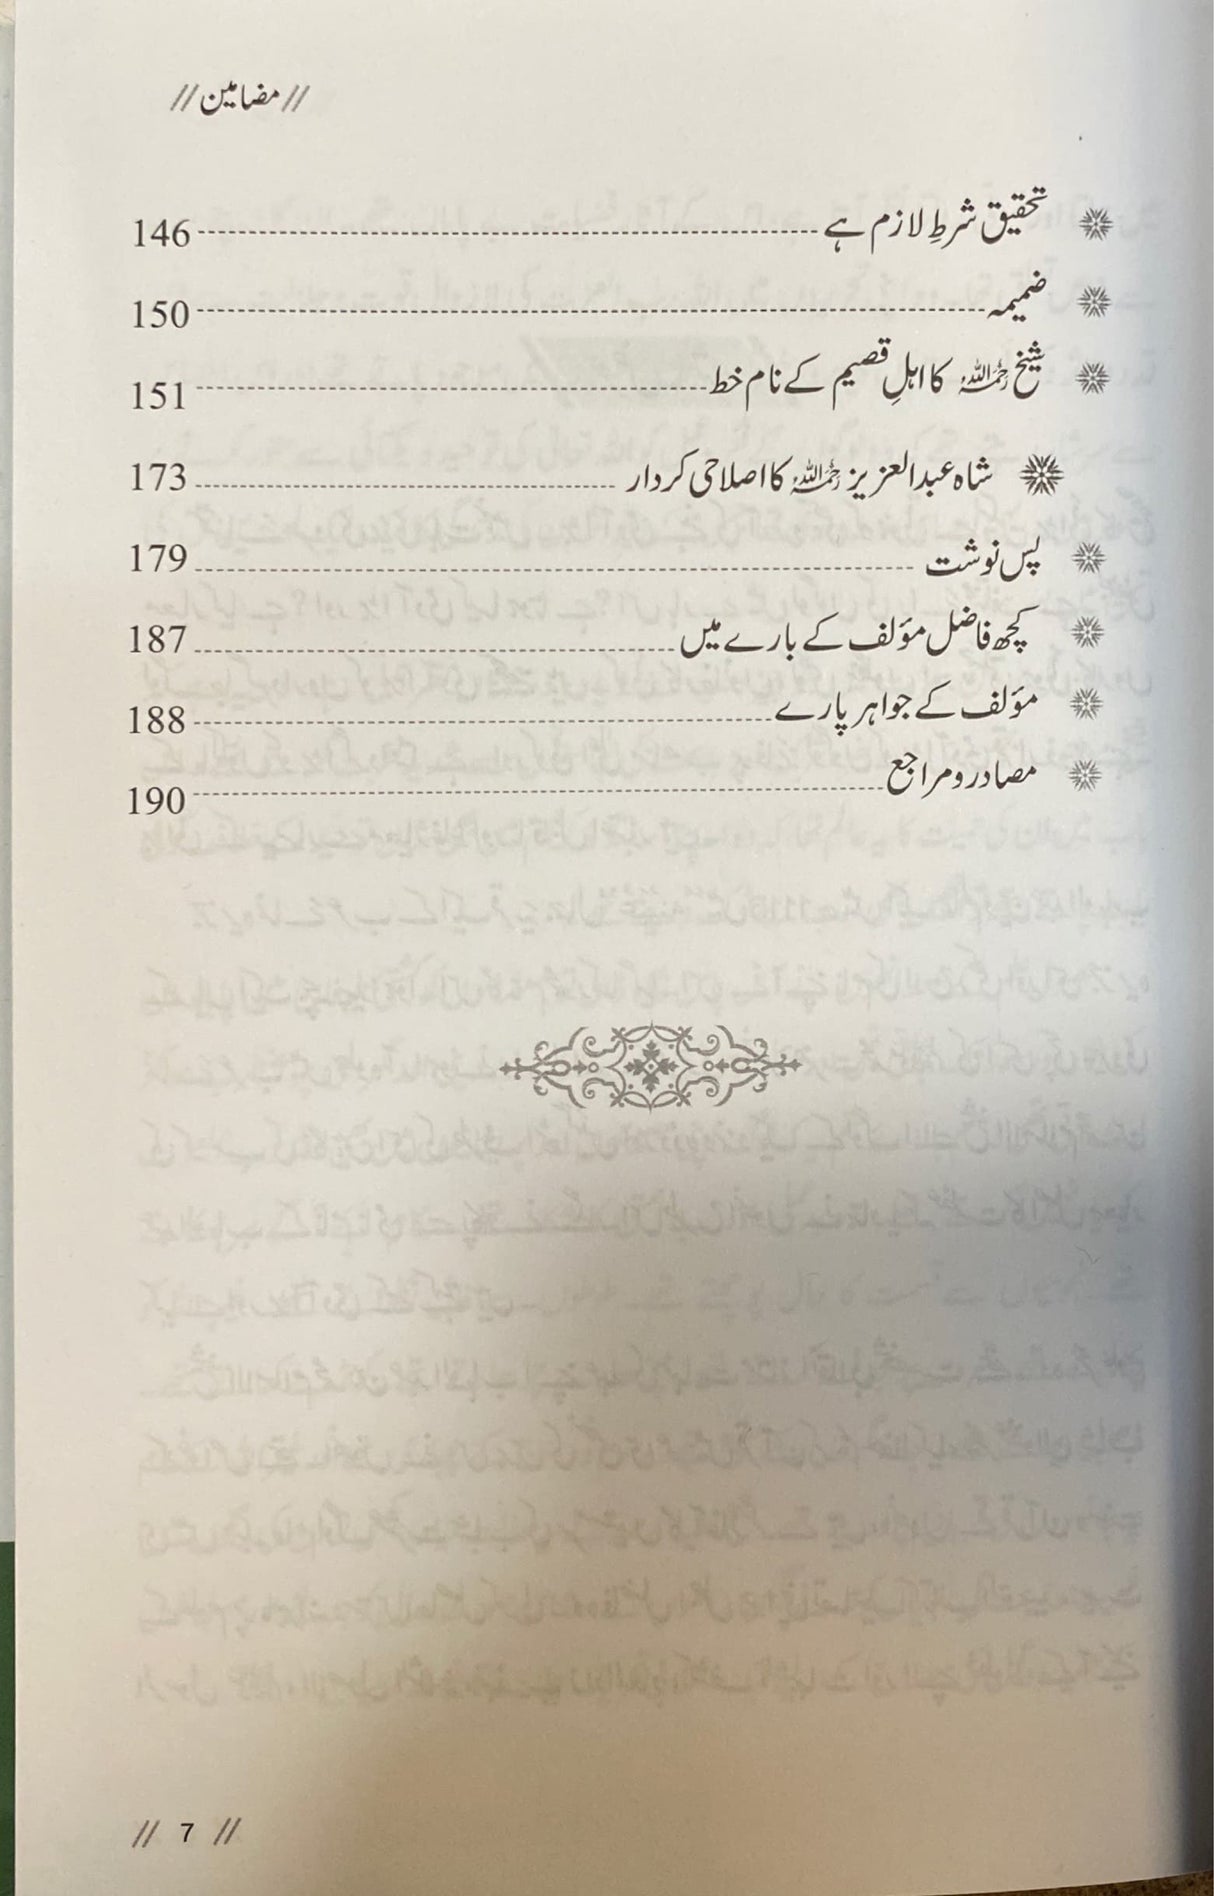 // مضامین //
تحقیق شرطِ لازم ہے 146
ضمیمہ 150
شیخ رحمہ اللہ کا اہلِ قصیم کے نام خط 151
شاہ عبدالعزیز رحمہ اللہ کا اصلاحی کردار 173
پس نوشت 179
کچھ فاضل مؤلف کے بارے میں 187
مؤلف کے جواہر پارے 188
مصادر و مراجع 190
// 7 //